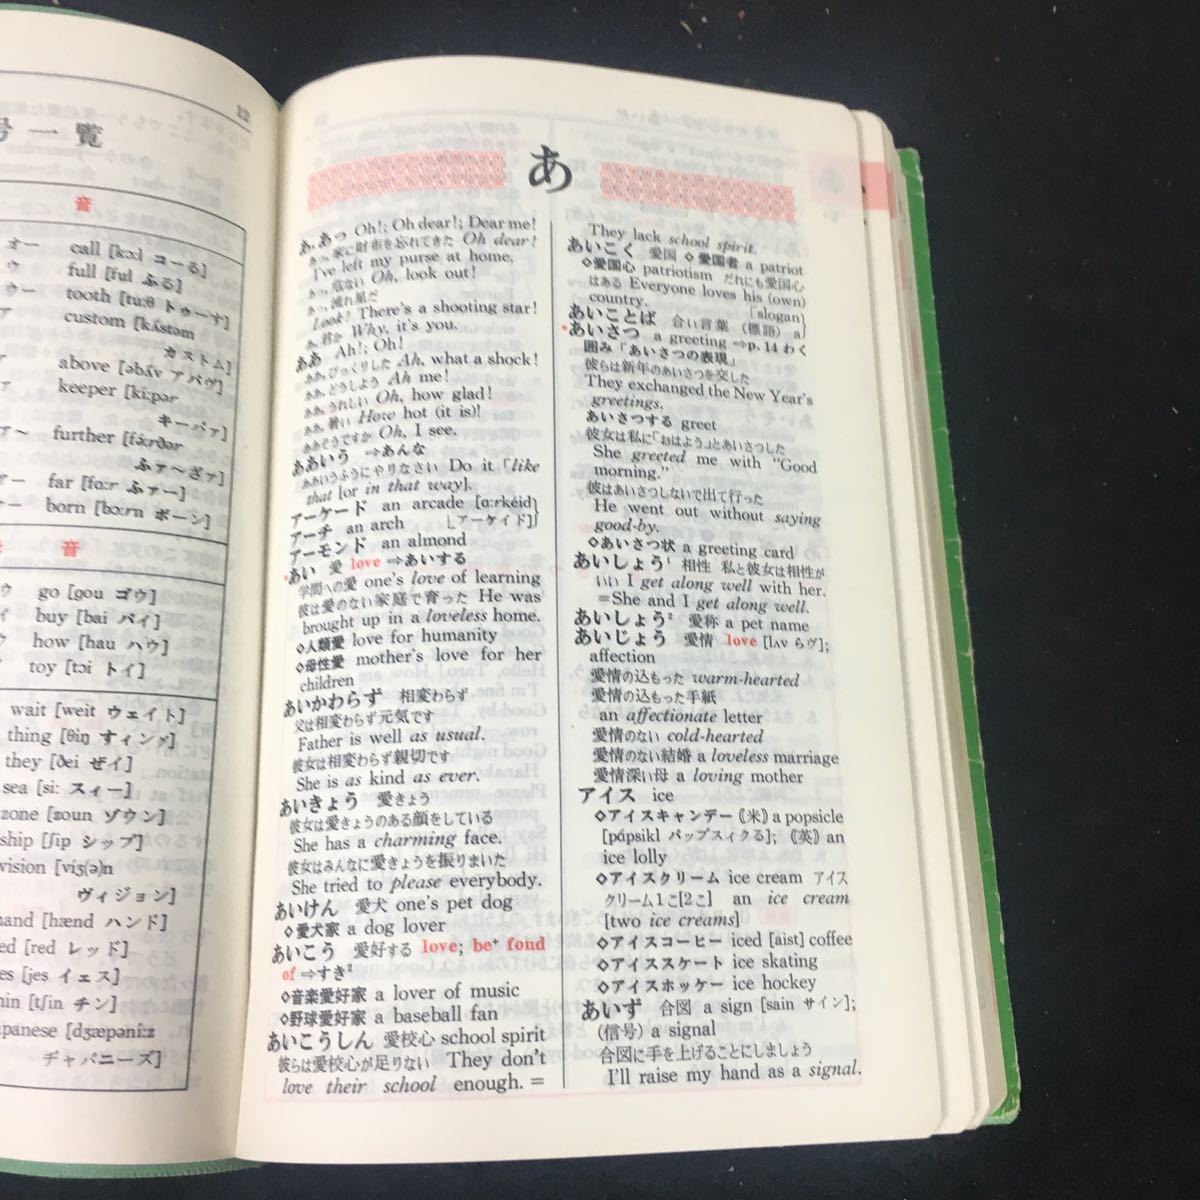 12
号一覧
音
オー call [kɔːl コーる]
ウ full [ful ふる]
ウー tooth [tuːθ トゥーす]
ア custom [kʌ́stəm
カストム]
ア above [əbʌ́v アバヴ]
ァ keeper [kíːpər
キーパァ]
ア〜 further [fə́ːrðər
ふァ〜ざァ]
アー far [fɑːr ふァー]
オー born [bɔːrn ボーン]
音
ウ go [gou ゴウ]
イ buy [bai バイ]
ウ how [hau ハウ]
イ toy [tɔi トイ]
wait [weit ウェイト]
thing [θiŋ すィング]
they [ðei ぜイ]
sea [siː スィー]
zone [zoun ゾウン]
ship [ʃip シップ]
vision [víʒ(ə)n
ヴィジョン]
hand [hænd ハンド]
red [red レッド]
yes [jes イェス]
chin [tʃin チン]
Japanese [dʒæpəníːz
ヂャパニーズ]
あ
あ, あっ Oh!; Oh dear!; Dear me!
あっ, 家に財布を忘れてきた Oh dear!
I've left my purse at home.
あっ, 危ない Oh, look out!
あっ, 流れ星だ
Look! There's a shooting star!
あっ, 君か Why, it's you.
ああ Ah!; Oh!
ああ, びっくりした Ah, what a shock!
ああ, どうしよう Ah me!
ああ, うれしい Oh, how glad!
ああ, 暑い How hot (it is)!
ああそうですか Oh, I see.
ああいう ⇒あんな
ああいうふうにやりなさい Do it「like
that [or in that way].
アーケード an arcade [ɑːrkéid
アーチ an arch [アーケイド]
アーモンド an almond
*あい 愛 love ⇒あいする
学問への愛 one's love of learning
彼は愛のない家庭で育った He was
brought up in a loveless home.
◇人類愛 love for humanity
◇母性愛 mother's love for her
children
あいかわらず 相変わらず
父は相変わらず元気です
Father is well as usual.
彼女は相変わらず親切です
She is as kind as ever.
あいきょう 愛きょう
彼女は愛きょうのある顔をしている
She has a charming face.
彼女はみんなに愛きょうを振りまいた
She tried to please everybody.
あいけん 愛犬 one's pet dog
◇愛犬家 a dog lover
あいこう 愛好する love; be⁺ fond
of ⇒すき²
◇音楽愛好家 a lover of music
◇野球愛好家 a baseball fan
あいこうしん 愛校心 school spirit
彼らは愛校心が足りない They don't
love their school enough. =
They lack school spirit.
あいこく 愛国 ◇愛国者 a patriot
◇愛国心 patriotism だれにも愛国心
はある Everyone loves his (own)
country. [slogan]
あいことば 合い言葉 (標語) a
*あいさつ a greeting ⇒p. 14 わく
囲み「あいさつの表現」
彼らは新年のあいさつを交した
They exchanged the New Year's
greetings.
あいさつする greet
彼女は私に「おはよう」とあいさつした
She greeted me with "Good
morning."
彼はあいさつしないで出て行った
He went out without saying
good-by.
◇あいさつ状 a greeting card
あいしょう¹ 相性 私と彼女は相性が
いい I get along well with her.
=She and I get along well.
あいしょう² 愛称 a pet name
あいじょう 愛情 love [lʌv らヴ];
affection
愛情の込もった warm-hearted
愛情の込もった手紙
an affectionate letter
愛情のない cold-hearted
愛情のない結婚 a loveless marriage
愛情深い母 a loving mother
アイス ice
◇アイスキャンデー《米》a popsicle
[pápsikl パップスィクる];《英》an
ice lolly
◇アイスクリーム ice cream アイス
クリーム1こ[2こ] an ice cream
[two ice creams]
◇アイスコーヒー iced [aist] coffee
◇アイススケート ice skating
◇アイスホッケー ice hockey
あいず 合図 a sign [sain サイン];
(信号) a signal
合図に手を上げることにしましょう
I'll raise my hand as a signal.